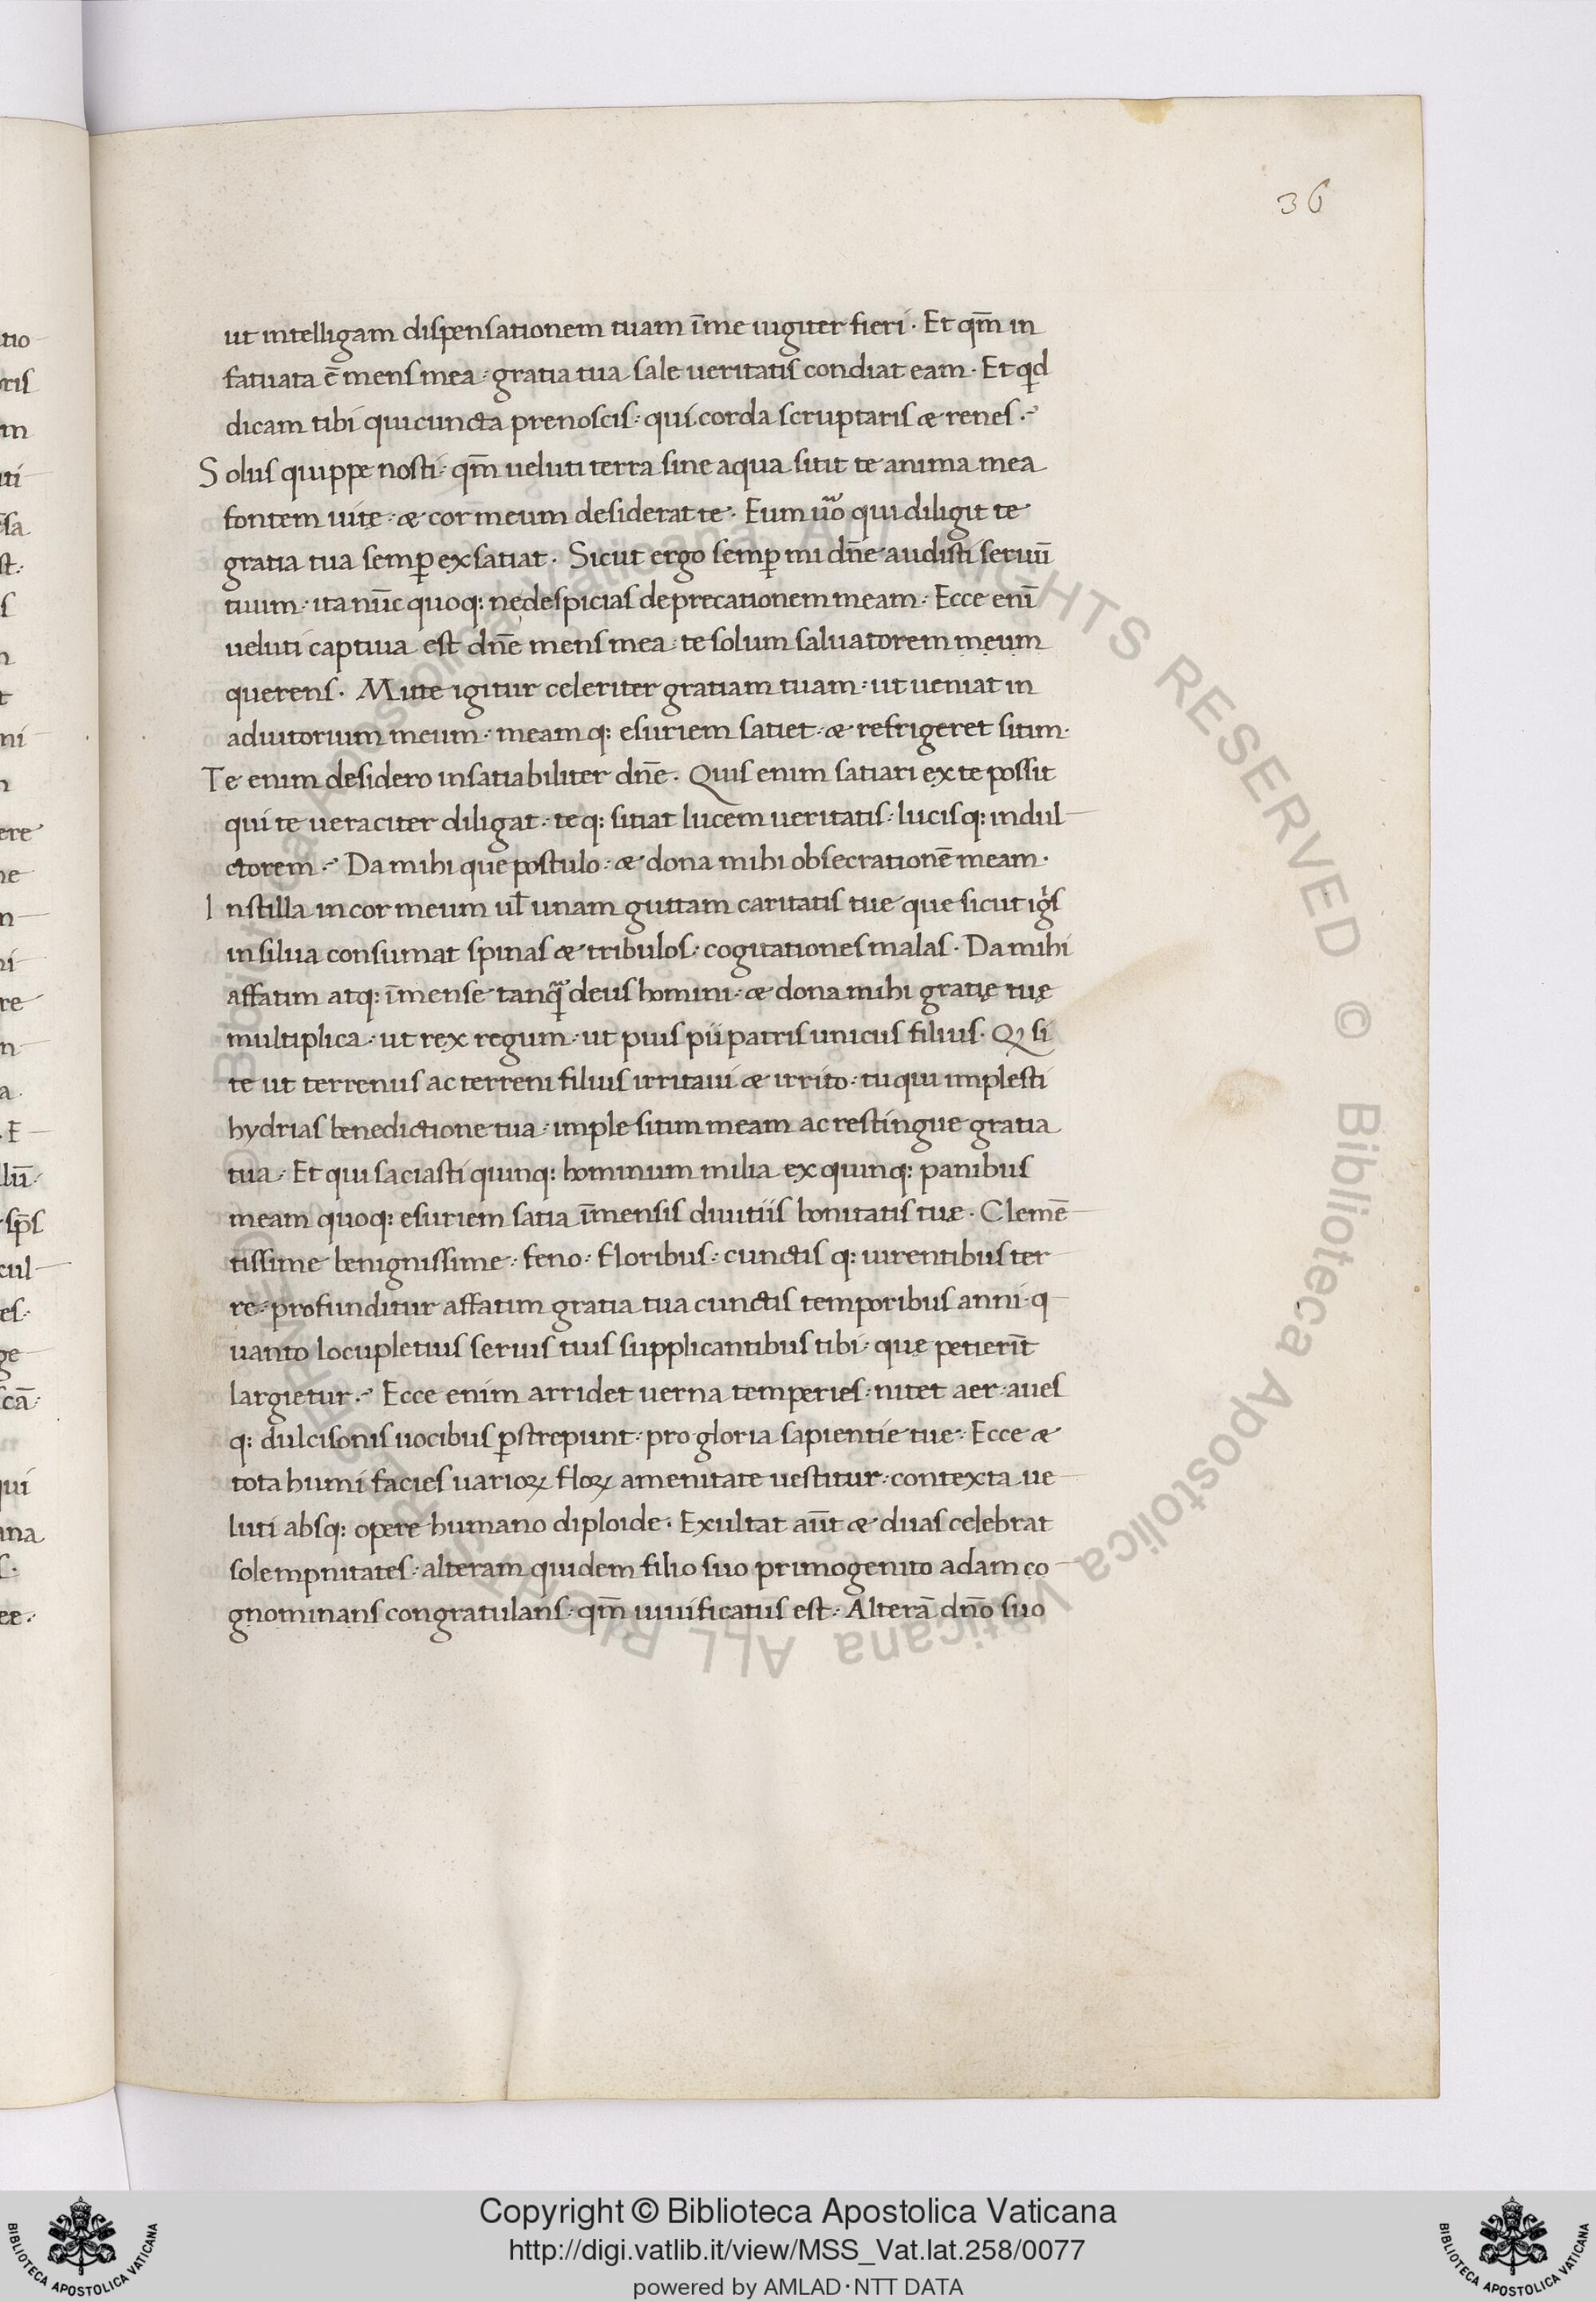 36
ut intelligam dispensationem tuam ī me iugiter fieri. Et qm̄ in
fatuata ē mens mea: gratia tua sale ueritatis condiat eam. Et qd
dicam tibi qui cuncta prenoscis: qui corda scruptaris æ renes.
Solus quippe nosti: qm̄ ueluti terra sine aqua sitit te anima mea
fontem uitę: æ cor meum desiderat te. Eum uo qui diligit te
gratia tua semꝑ exsatiat. Sicut ergo semꝑ mi dn̄e audisti seruū
tuum: ita nūc quoq: ne despicias deprecationem meam: Ecce enī
ueluti captiua est dn̄e mens mea: te solum saluatorem meum
querens. Mitte igitur celeriter gratiam tuam: ut ueniat in
adiutorium meum: meamq: esuriem satiet: æ refrigeret sitim.
Te enim desidero insatiabiliter dn̄e. Quis enim satiari ex te possit
qui te ueraciter diligat: teq: sitiat lucem ueritatis: lucisq: indul
ctorem. Da mihi que postulo: æ dona mihi obsecrationē meam.
Instilla in cor meum ul̄ unam guttam caritatis tue que sicut igis
in silua consumat spinas æ tribulos: cogitationes malas. Da mihi
affatim atq: īmense tanq̄ deus homini: æ dona mihi gratię tuę
multiplica: ut rex regum: ut pius pii patris unicus filius. Qꝫ si
te ut terrenus ac terreni filius irritaui æ irrito: tu qui implesti
hydrias benedictione tua: imple sitim meam ac restingue gratia
tua: Et qui saciasti quinq: hominum milia ex quinq: panibus
meam quoq: esuriem satia īmensis diuitiis bonitatis tuę. Clemē
tissime benignissime: feno: floribus: cunctis q: uirentibus ter
re: profunditur affatim gratia tua cunctis temporibus anni: q
uanto locupletius seruis tuis supplicantibus tibi: quę petierīt
largietur. Ecce enim arridet uerna temperies: nitet aer: aues
q: dulcisonis uocibus ꝑstrepunt: pro gloria sapientie tue: Ecce æ
tota humi facies uarioꝝ floꝝ amenitate uestitur: contexta ue
luti absq: opere humano diploide. Exultat aūt æ duas celebrat
solempnitates: alteram quidem filio suo primogenito adam co
gnominans congratulans: qm̄ uiuificatus est: Alterā dn̄o suo
Copyright © Biblioteca Apostolica Vaticana
http://digi.vatlib.it/view/MSS_Vat.lat.258/0077
powered by AMLAD·NTT DATA